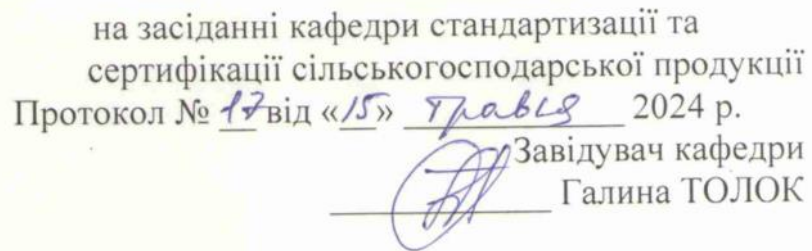 на засіданні кафедри стандартизації та
сертифікації сільськогосподарської продукції
Протокол № 17 від «15» травня 2024 р.
Завідувач кафедри
Галина ТОЛОК